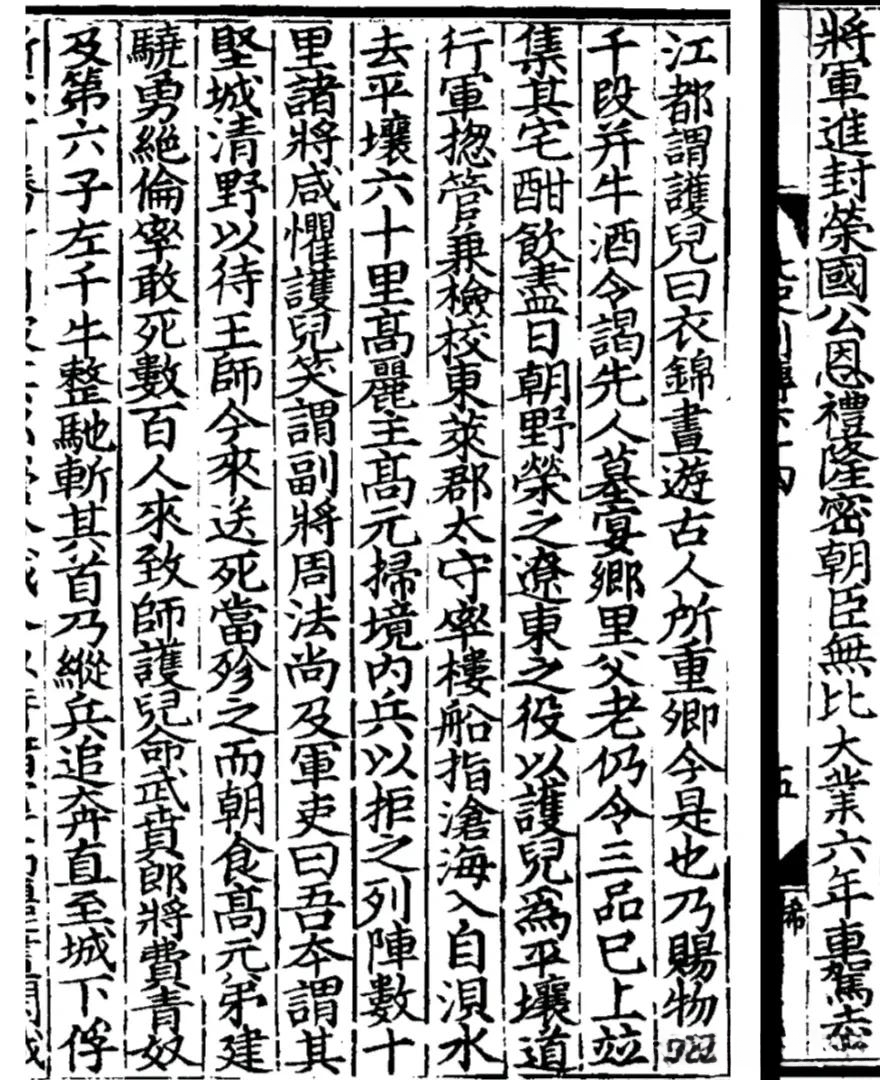 將軍進封榮國公恩禮隆密朝臣無比大業六年車駕幸
五
希
江都謂護兒曰衣錦晝遊古人所重卿今是也乃賜物
千段并牛酒令謁先人墓宴鄉里父老仍令三品已上竝
集其宅酣飲盡日朝野榮之遼東之役以護兒爲平壤道
行軍揔管兼檢校東萊郡太守率樓船指滄海入自浿水
去平壤六十里髙麗主髙元掃境内兵以拒之列陣數十
里諸將咸懼護兒笑謂副將周法尚及軍吏曰吾本謂其
堅城清野以待王師今來送死當殄之而朝食髙元弟建
驍勇絶倫率敢死數百人來致師護兒命武賁郎將費青奴
及第六子左千牛整馳斬其首乃縱兵追奔直至城下俘